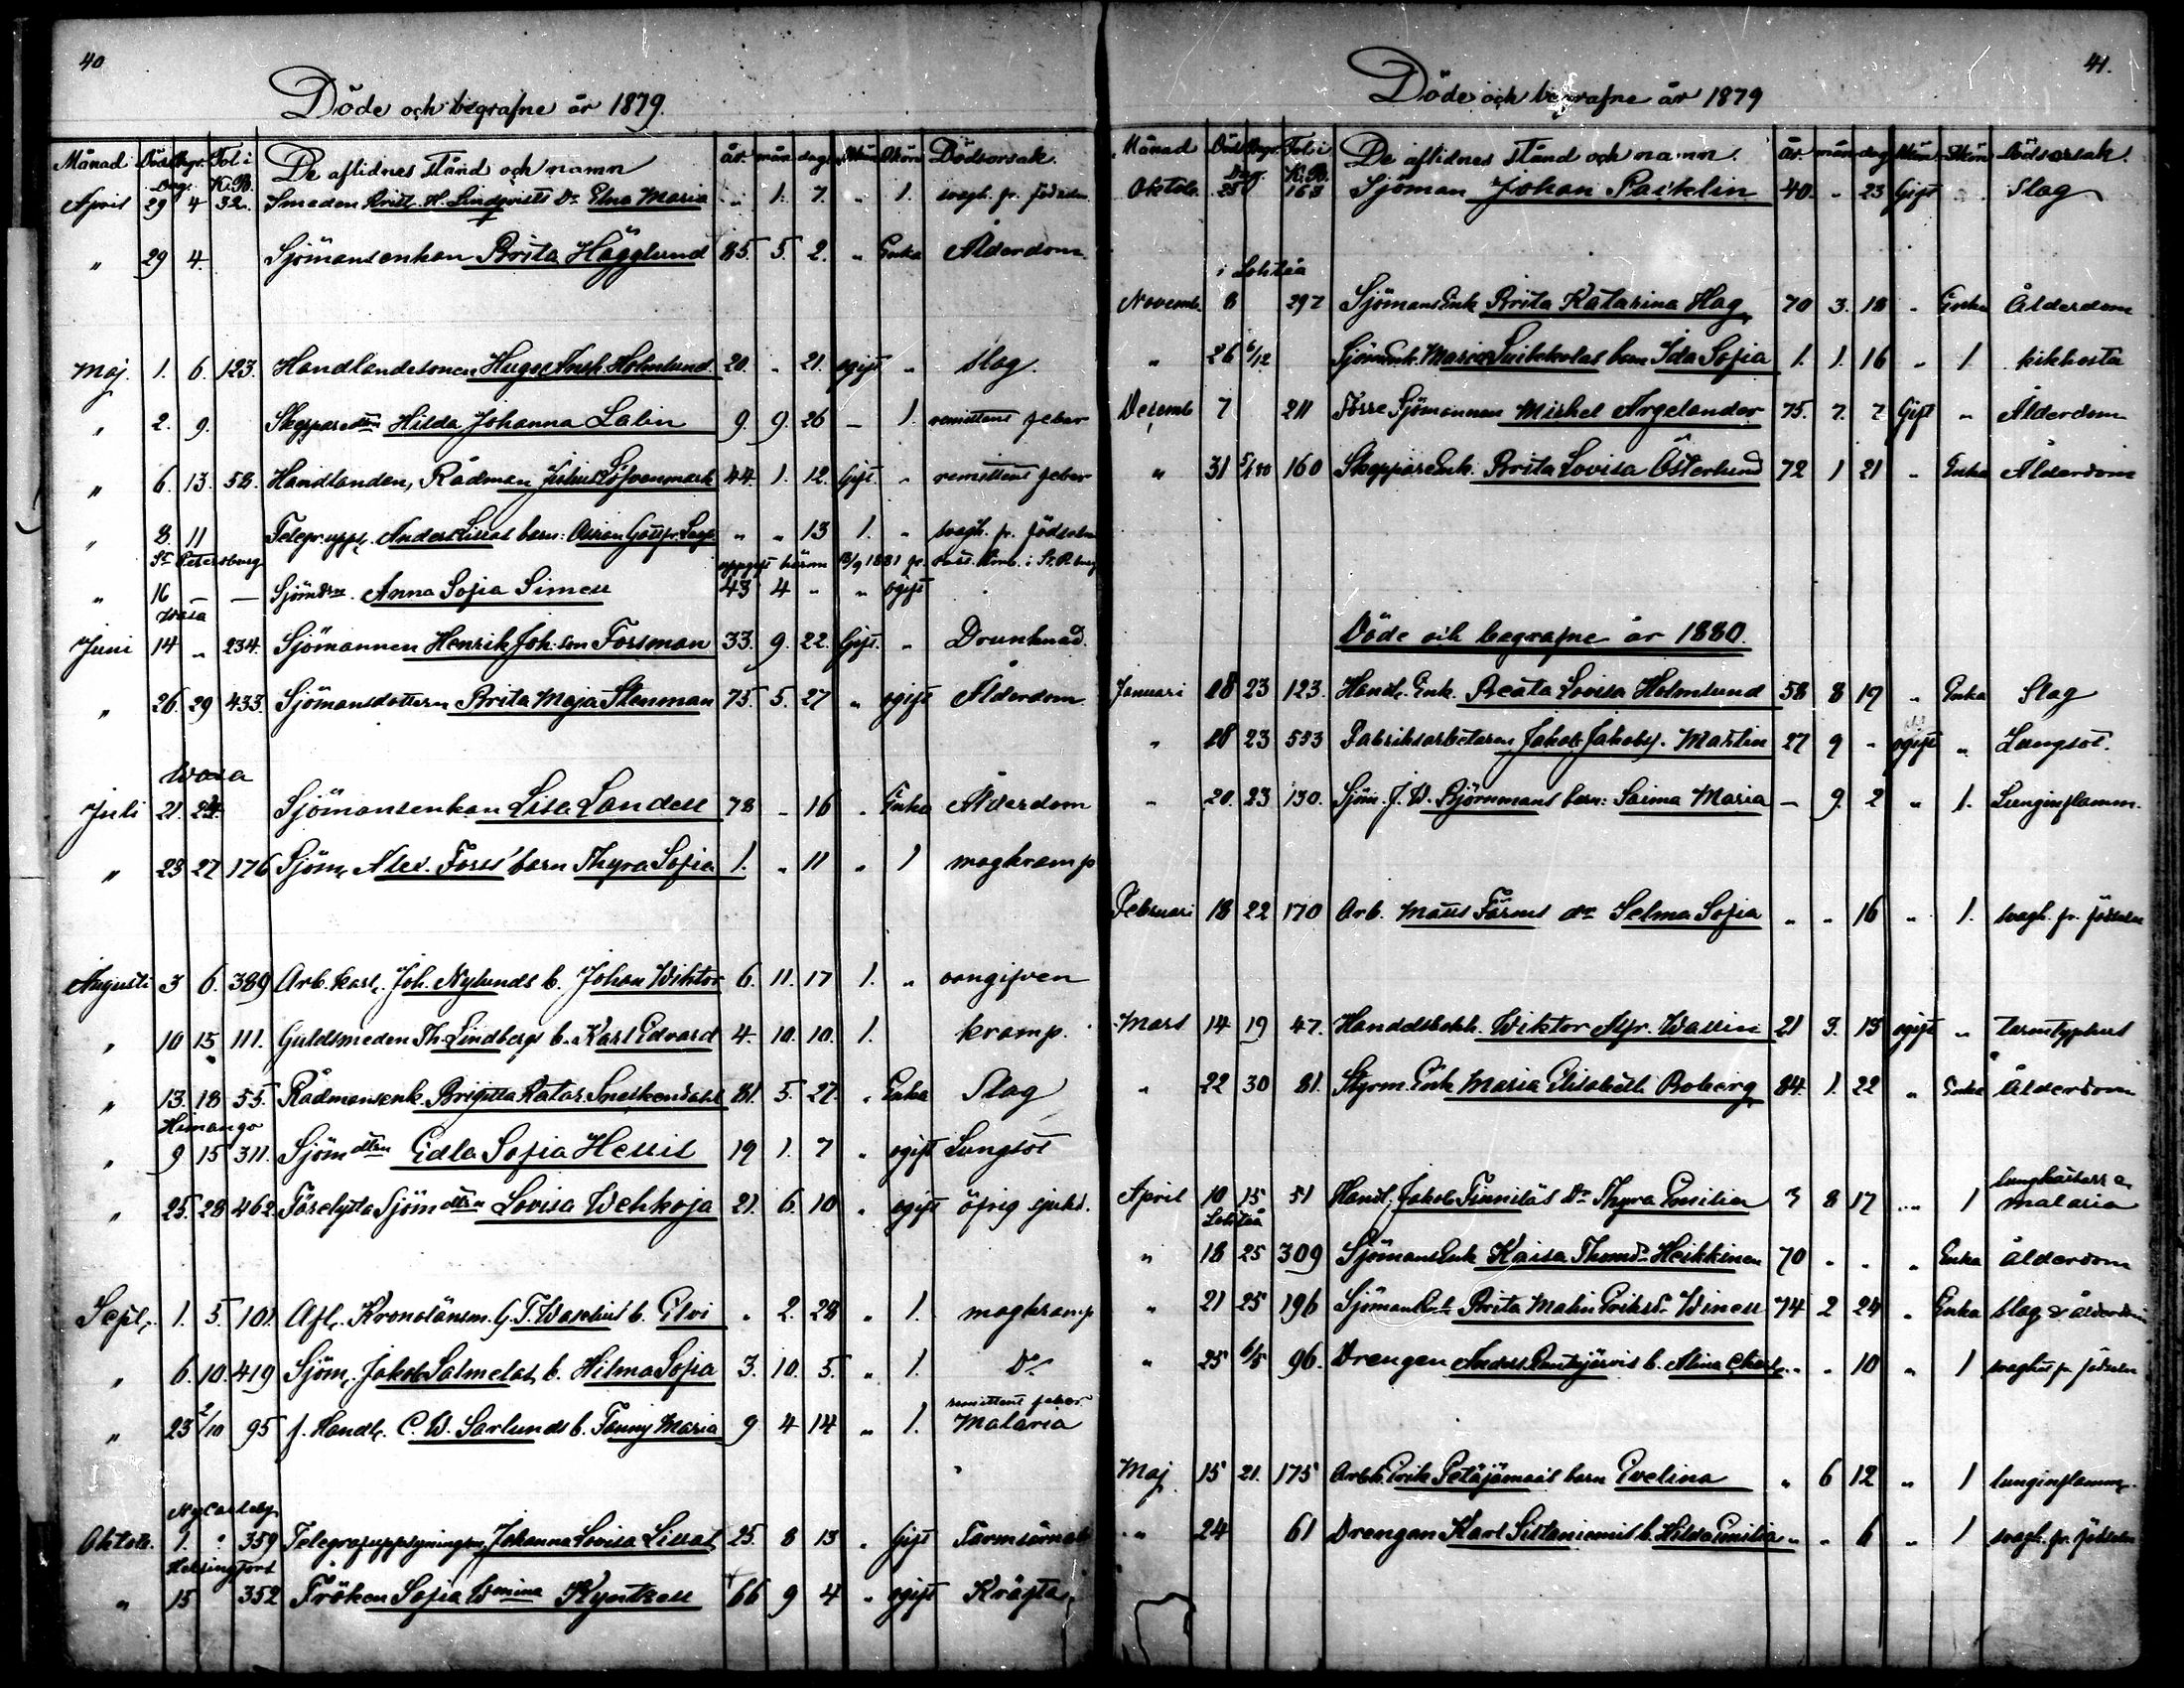 40
Döde och begrafne år 1879.
Månad Död Begr. Fol. i De aflidnes stånd och namn år mån dag Mkön Qkön Dödsorsak
Dag. K.B.
April 29 4 32. Smeden Lindqvists Dr Elna Maria " 1. 7. " 1. svagh. fr. födseln
" 29 4. Sjömansenkan Brita Hägglund 85. 5. 2. " Enka Ålderdom
Maj. 1. 6. 123. Handlandesonen Hugo Holmlund 20. " 21. ogift " Slag.
" 2. 9. Skepparedtrn Hilda Johanna Labin 9. 9. 26 – 1. remittent feber
" 6. 13. 58. Handlanden, Rådman Julius Löfvenmark 44. 1. 12. Gift " remittent feber
" 8. 11 Telegr.uppl. Anders Lissos barn: " " 13 1. " svagh. fr. födseln
St Petersburg
" 16 — — Sjömdtr. Anna Sofia Simell 43 4 " " ogift
Wasa
Juni 14 " 234. Sjömannen Henrik Joh.son Forsman 33. 9. 22. Gift. " Drunknad.
" 26. 29 433. Sjömansdottern Brita Maja Stenman 75. 5. 27 " ogift Ålderdom
Wasa
Juli 21. 24. Sjömansenkan Lisa Landell 78 " 16 " Enka Ålderdom
" 23 27 176 Sjöm. Alex. Forss' barn Thyra Sofia 1. " 11 " 1 magkramp
Augusti 3 6. 389 Arb.karl. Joh. Nylunds b. Johan Wiktor 6. 11. 17 1. " oangifven
" 10 15 111. Guldsmeden Th. Lindbergs b. Karl Edvard 4. 10. 10. 1. kramp.
" 13. 18 55. Rådmansenk. Brigitta Katar. Sneikendahl 81. 5. 27. " Enka Slag
Himango
" 9 15 311. Sjömdtrn Edla Sofia Hellil 19 1. 7 " ogift Lungsot
" 25. 28 462. Förelysta Sjömdtrn Lovisa Wehkoja 21. 6. 10 " ogift öfrig sjukd.
Sept. 1. 5. 101. Afl. Kronolänsm. G. T. b. Elvi " 2. 28 " 1. magkramp
" 6. 10. 419 Sjöm. Jakob Salmelas b. Hilma Sofia 3. 10. 5. " 1. Do
remittent feber
" 23 2/10 95 f. Handl. C. W. Sarlunds b. Fanny Maria 9 4 14 " 1. Malaria
Nycarleby
Oktob. 1. " 359 Johanna Lovisa 25. 8 13 " Gift
Helsingfors
" 15 352 Fröken Sofia Wmina Kyntzell 66 9 4 " ogift Kräfta.
41.
Döde och begrafne år 1879
Månad Död Begr. Fol. i De aflidnes stånd och namn. år. mån dag Mkön Qkön Dödsorsak.
Dag. K.B.
Oktob. 28 163 Sjöman Johan Packlin 40. " 23 Gift " Slag
i Lohteå
Novemb. 8 297 SjömansEnk. Brita Katarina Hag 70 3. 18 " Enka Ålderdom
" 26 6/12 Maria barn Ida Sofia 1. 1. 16 " 1 kikhosta
Decemb 7 211 Förre Sjömannen Mickel Argelander 75. 7. 7 Gift " Ålderdom
" 31 5/1 80 160 SkeppareEnk. Brita Lovisa Österlund 72 1 21 " Enka Ålderdom
Döde och begrafne år 1880.
Januari 18 23 123. Handl. Enk. Beata Lovisa Holmlund 58 8 19 " Enka Slag
" 18 23 553 Fabriksarbetaren Jakob Jakobs. Martin 27 9 " ogift " Lungsot.
" 20. 23 130. Sjöm. J. W. Björnmans barn: Saima Maria — 9. 2 " 1. Lunginflamm.
Februari 18 22 170 Arb. Matts Färms dr Selma Sofia " " 16 " 1. svagh. fr. födseln
Mars 14 19 47. Handelsbokh. Wiktor Alfr. Wallin 21 3. 15 ogift " tarmtyphus
" 22 30 81. Styrm. Enk. Maria Elisabeth Boberg 84. 1. 22 " Enka Ålderdom
lungkatarr o.
April 10 15 51 Handl. Jakob Finniläs Dr Thyra Emilia 3 8 17 " 1 malaria
Lohteå
" 18 25 309 SjömansEnk Kaisa Thomdr Heikkinen 70 " " " Enka Ålderdom
" 21 25 196 SjömansEnk Brita Malin Eriksdr Winell 74 2 24 " Enka Slag o. ålderdom
" 25 6/5 96. Drengen Anders b. Alina " " 10 " 1 svaghet fr. födseln
Maj 15 21. 175 Arbk. Erik Petäjämaas barn Evelina " 6 12 " 1 lunginflamm.
" 24 61 Drengen Karl b. Hilda Emilia " " 6 " 1 svagh. fr. födseln